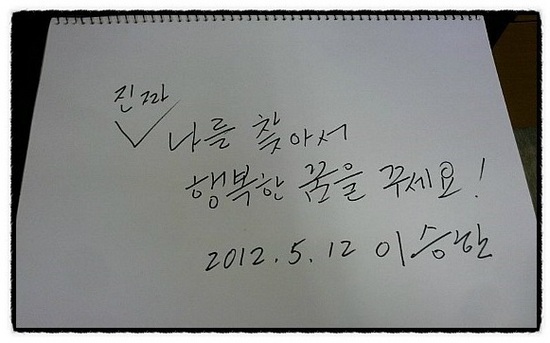 진짜
나를 찾아서
행복한 꿈을 꾸세요!
2012.5.12 이승한